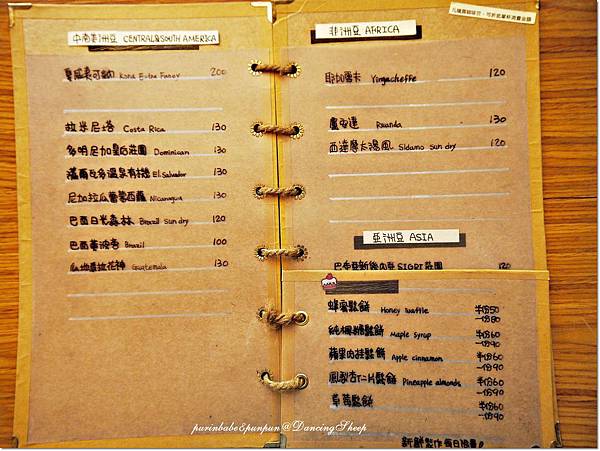 中南美洲豆 CENTRAL&SOUTH AMERICA
夏威夷可納 Kona Extra Fancy 200
拉米尼塔 Costa Rica 130
多明尼加皇后莊園 Dominican 130
薩爾瓦多溫泉有機 El Salvador 130
尼加拉瓜 Nicaragua 130
巴西日光森林 Brazil Sun dry 120
巴西黃波旁 Brazil 100
瓜地馬拉花神 Guatemala 130
非洲豆 AFRICA
耶加雪夫 Yirgacheffe 120
盧安達 Rwanda 130
西達摩 Sidamo Sun dry 120
亞洲豆 ASIA
SIGRI莊園 120
蜂蜜鬆餅 Honey Waffle 半份50
一份80
純楓糖鬆餅 Maple Syrup 半份60
一份90
蘋果肉桂鬆餅 Apple cinnamon 半份60
一份90
鳳梨杏仁片鬆餅 Pineapple almonds 半份60
一份90
草莓鬆餅 半份60
一份90
purinbabe&punpun@DancingSheep